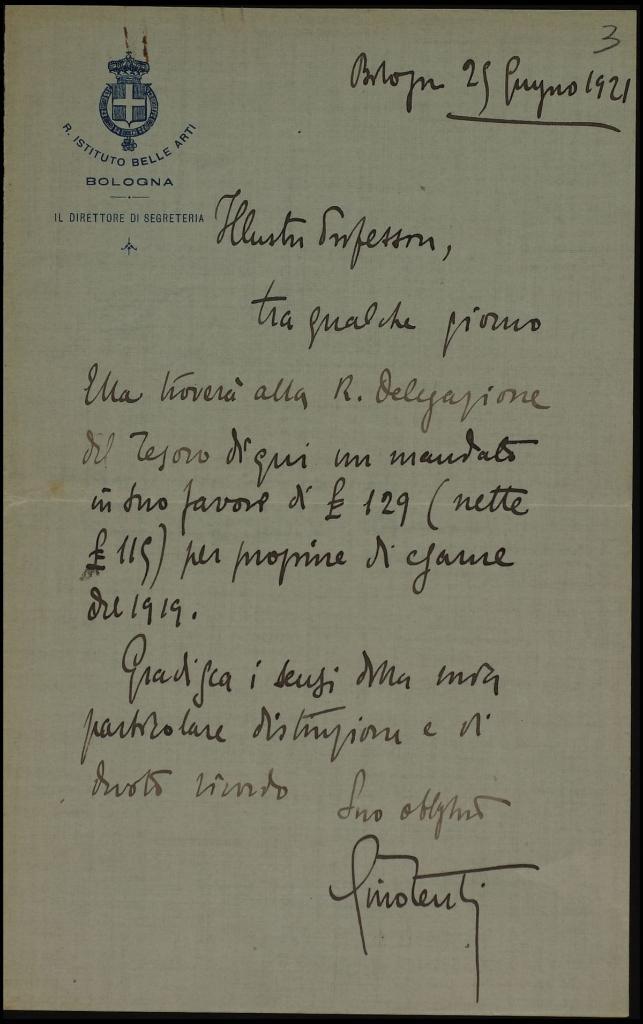 3
R. ISTITUTO BELLE ARTI
BOLOGNA
IL DIRETTORE DI SEGRETERIA
Bologna 25 Giugno 1921
Illustre Professore,
tra qualche giorno
Ella troverà alla R. Delegazione
del Tesoro di qui un mandato
in Suo favore di £ 129 (nette
£ 115) per propine di esame
del 1919.
Gradisca i sensi della mia
particolare distinzione e di
devoto ricordo
Suo obbligmo
Gino Tenti